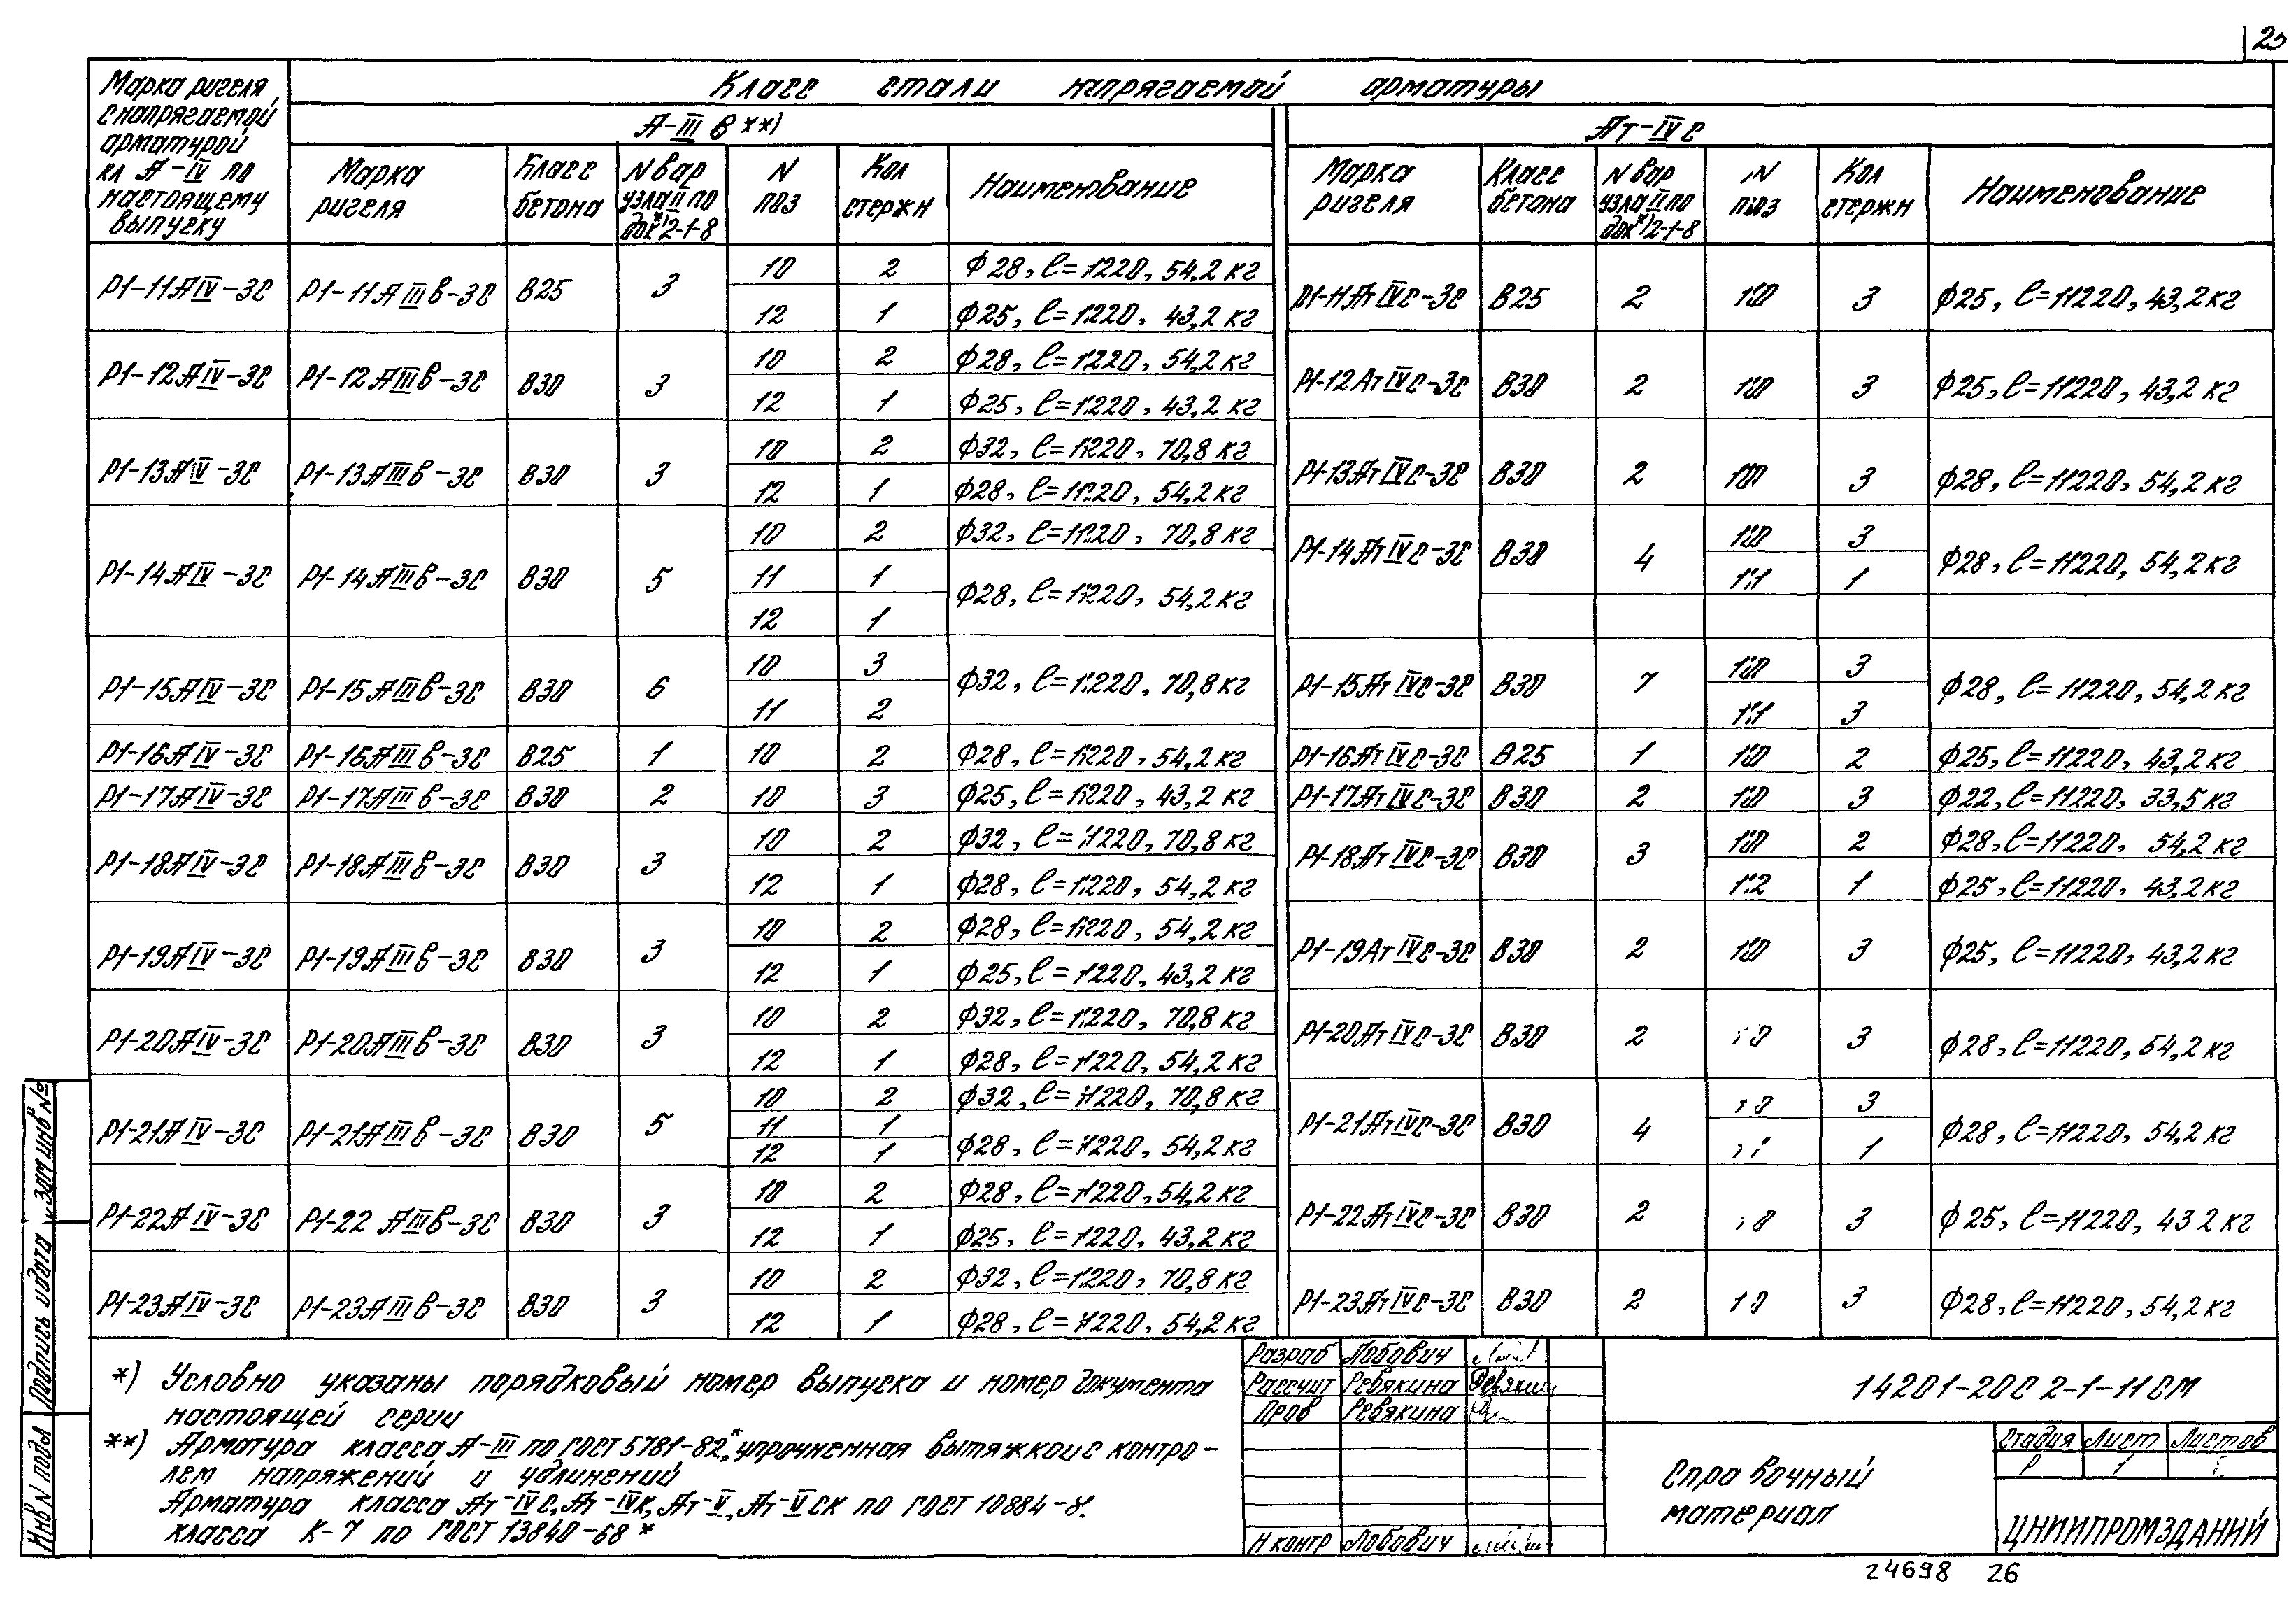 Марка ригеля с напрягаемой арматурой кл А-IV по настоящему выпуску
Класс стали напрягаемой арматуры
А-III в **)
Ат-IVс
Марка ригеля
Класс бетона
N вар узла II по док*) 2-1-8
N поз
Кол стержн
Наименование
Марка ригеля
Класс бетона
N вар узла II по док*) 2-1-8
N поз
Кол стержн
Наименование
Р1-11АIV-3С Р1-11АIIIв-3С В25 3
10 2 Ф28, ℓ=11220, 54,2 кг
12 1 Ф25, ℓ=11220, 43,2 кг
Р1-11АтIVс-3С В25 2 10 3 Ф25, ℓ=11220, 43,2 кг
Р1-12АIV-3С Р1-12АIIIв-3С В30 3
10 2 Ф28, ℓ=11220, 54,2 кг
12 1 Ф25, ℓ=11220, 43,2 кг
Р1-12АтIVс-3С В30 2 10 3 Ф25, ℓ=11220, 43,2 кг
Р1-13АIV-3С Р1-13АIIIв-3С В30 3
10 2 Ф32, ℓ=11220, 70,8 кг
12 1 Ф28, ℓ=11220, 54,2 кг
Р1-13АтIVс-3С В30 2 10 3 Ф28, ℓ=11220, 54,2 кг
Р1-14АIV-3С Р1-14АIIIв-3С В30 5
10 2 Ф32, ℓ=11220, 70,8 кг
11 1
12 1
Ф28, ℓ=11220, 54,2 кг
Р1-14АтIVс-3С В30 4
10 3
11 1
Ф28, ℓ=11220, 54,2 кг
Р1-15АIV-3С Р1-15АIIIв-3С В30 6
10 3
11 2
Ф32, ℓ=11220, 70,8 кг
Р1-15АтIVс-3С В30 7
10 3
11 3
Ф28, ℓ=11220, 54,2 кг
Р1-16АIV-3С Р1-16АIIIв-3С В25 1 10 2 Ф28, ℓ=11220, 54,2 кг
Р1-16АтIVс-3С В25 1 10 2 Ф25, ℓ=11220, 43,2 кг
Р1-17АIV-3С Р1-17АIIIв-3С В30 2 10 3 Ф25, ℓ=11220, 43,2 кг
Р1-17АтIVс-3С В30 2 10 3 Ф22, ℓ=11220, 33,5 кг
Р1-18АIV-3С Р1-18АIIIв-3С В30 3
10 2 Ф32, ℓ=11220, 70,8 кг
12 1 Ф28, ℓ=11220, 54,2 кг
Р1-18АтIVс-3С В30 3
10 2 Ф28, ℓ=11220, 54,2 кг
12 1 Ф25, ℓ=11220, 43,2 кг
Р1-19АIV-3С Р1-19АIIIв-3С В30 3
10 2 Ф28, ℓ=11220, 54,2 кг
12 1 Ф25, ℓ=11220, 43,2 кг
Р1-19АтIVс-3С В30 2 10 3 Ф25, ℓ=11220, 43,2 кг
Р1-20АIV-3С Р1-20АIIIв-3С В30 3
10 2 Ф32, ℓ=11220, 70,8 кг
12 1 Ф28, ℓ=11220, 54,2 кг
Р1-20АтIVс-3С В30 2 10 3 Ф28, ℓ=11220, 54,2 кг
Р1-21АIV-3С Р1-21АIIIв-3С В30 5
10 2 Ф32, ℓ=11220, 70,8 кг
11 1
12 1
Ф28, ℓ=11220, 54,2 кг
Р1-21АтIVс-3С В30 4
10 3
11 1
Ф28, ℓ=11220, 54,2 кг
Р1-22АIV-3С Р1-22 АIIIв-3С В30 3
10 2 Ф28, ℓ=11220, 54,2 кг
12 1 Ф25, ℓ=11220, 43,2 кг
Р1-22АтIVс-3С В30 2 10 3 Ф25, ℓ=11220, 43 2 кг
Р1-23АIV-3С Р1-23АIIIв-3С В30 3
10 2 Ф32, ℓ=11220, 70,8 кг
12 1 Ф28, ℓ=11220, 54,2 кг
Р1-23АтIVс-3С В30 2 10 3 Ф28, ℓ=11220, 54,2 кг
*) Условно указаны порядковый номер выпуска и номер документа
настоящей серии
**) Арматура класса А-III по ГОСТ 5781-82*, упрочненная вытяжкой с контро-
лем напряжений и удлинений
Арматура класса Ат-IVс, Ат-IVк, Ат-V, Ат-Vск по ГОСТ 10884-
класса К-7 по ГОСТ 13840-68*
Разраб Лобович
Рассчит Ревякина Ревякин
Пров Ревякина
Н контр Лобович
1.420.1-20С 2-1-11СМ
Справочный
материал
Стадия Лист Листов
Р 1
ЦНИИПРОМЗДАНИЙ
24698 26
Инв N подл Подпись и дата Взам инв №